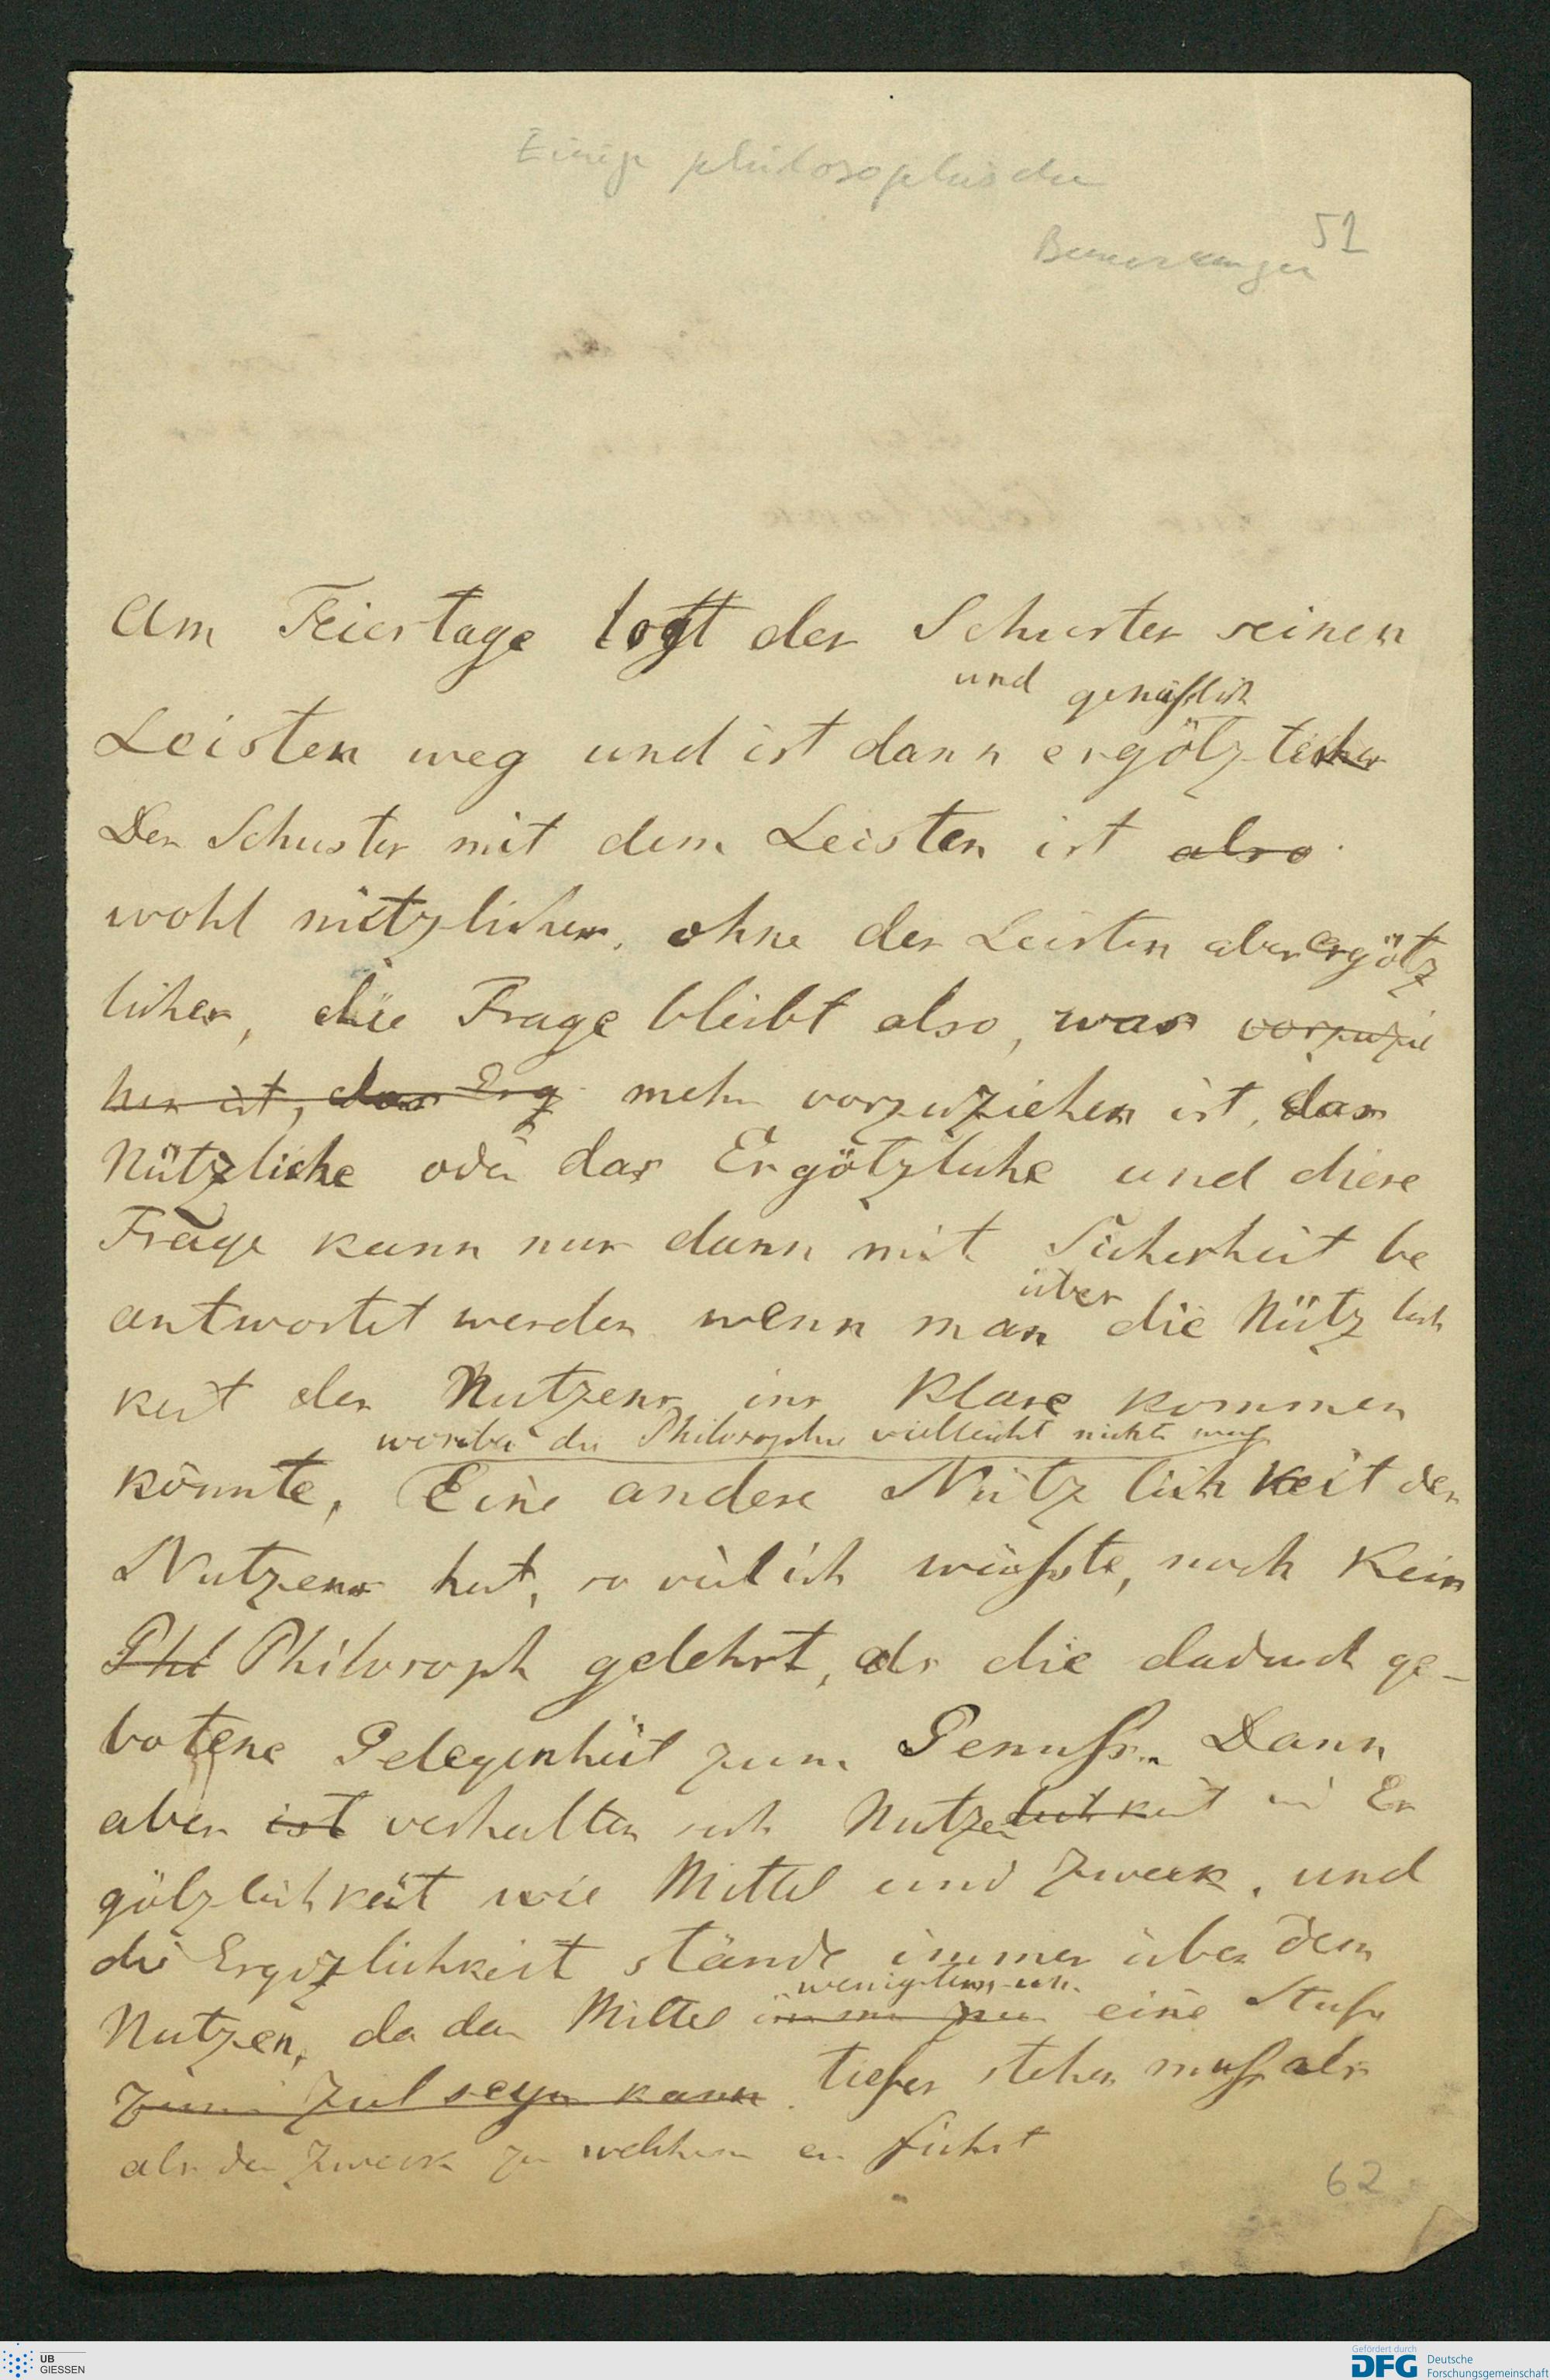 Einige philosophische
51
Bemerkungen
Am Feiertage legt der Schuster seinen
und genüßlich
Leisten weg und ist dann ergötzlicher
Der Schuster mit dem Leisten ist also
wohl nützlicher, ohne den Leisten aber ergötz
licher, die Frage bleibt also, was vorzuzie
hen ist, das Erg mehr vorzuziehen ist, das
Nützliche oder das Ergötzliche und diese
Frage kann nur dann mit Sicherheit be
über
antwortet werden wenn man die Nützlich
keit des Nutzens ins Klare kommen
worüber die Philosophie vielleicht nichts weiß
könnte, Eine andere Nützlichkeit des
Nutzens hat, so viel ich wüßte, noch kein
Phl Philosoph gelehrt, als die dadurch ge-
botene Gelegenheit zum Genuß. Dann
aber ist verhalten sich Nutzenlichkeit und Er
götzlichkeit wie Mittel und Zweck, und
die Ergözlichkeit stände immer über dem
wenigstens um
Nutzen, da das Mittel immer nur eine Stufe
zum Ziel seyn kann tiefer stehen muß als
als der Zweck zu welchem es führt
62
UB
GIESSEN
Gefördert durch
DFG Deutsche
Forschungsgemeinschaft